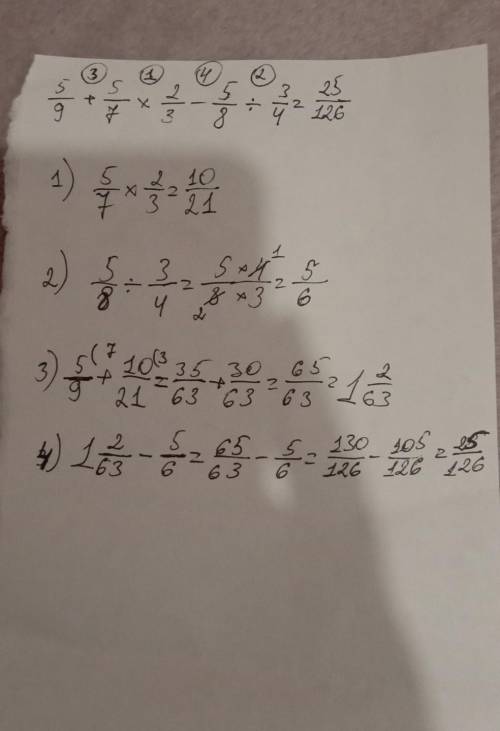 ③ ① ④ ②
5/9 + 5/7 × 2/3 - 5/8 ÷ 3/4 = 25/126
1) 5/7 × 2/3 = 10/21
2) 5/8 ÷ 3/4 = 5 × 4 1 / 2 8 × 3 = 5/6
3) 5/9 (7 + 10/21 (3 = 35/63 + 30/63 = 65/63 = 1 2/63
4) 1 2/63 - 5/6 = 65/63 - 5/6 = 130/126 - 105/126 = 25/126